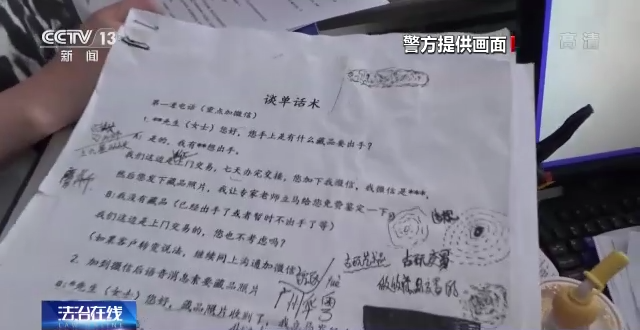 CCTV 13
新闻
警方提供画面
高清
谈单话术
第一是电话（重点加微信）
1.**先生（女士）您好，您手上是有什么藏品要出手？
A:是的，我有**想出手。
我们这边是上门交易，七天办完交接，您加下我微信，我微信是***，
然后您发下藏品照片，我让专家老师立马给您免费鉴定一下
B:我没有藏品（已经出手了或者暂时不出手了等）
我们这边是上门交易的，您也不考虑吗？
（如果客户转变说法，继续网上沟通加微信）
2.加到微信后语音消息索要藏品照片
*先生（女士）您好，藏品照片收到了，我
广州
法治在线